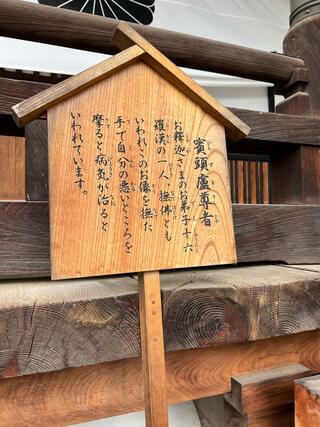 賓頭盧尊者
お釈迦さまのお弟子十六
羅漢の一人 撫佛とも
いわれ、このお像を撫た
手で自分の悪いところを
摩ると病気が治ると
いわれています。